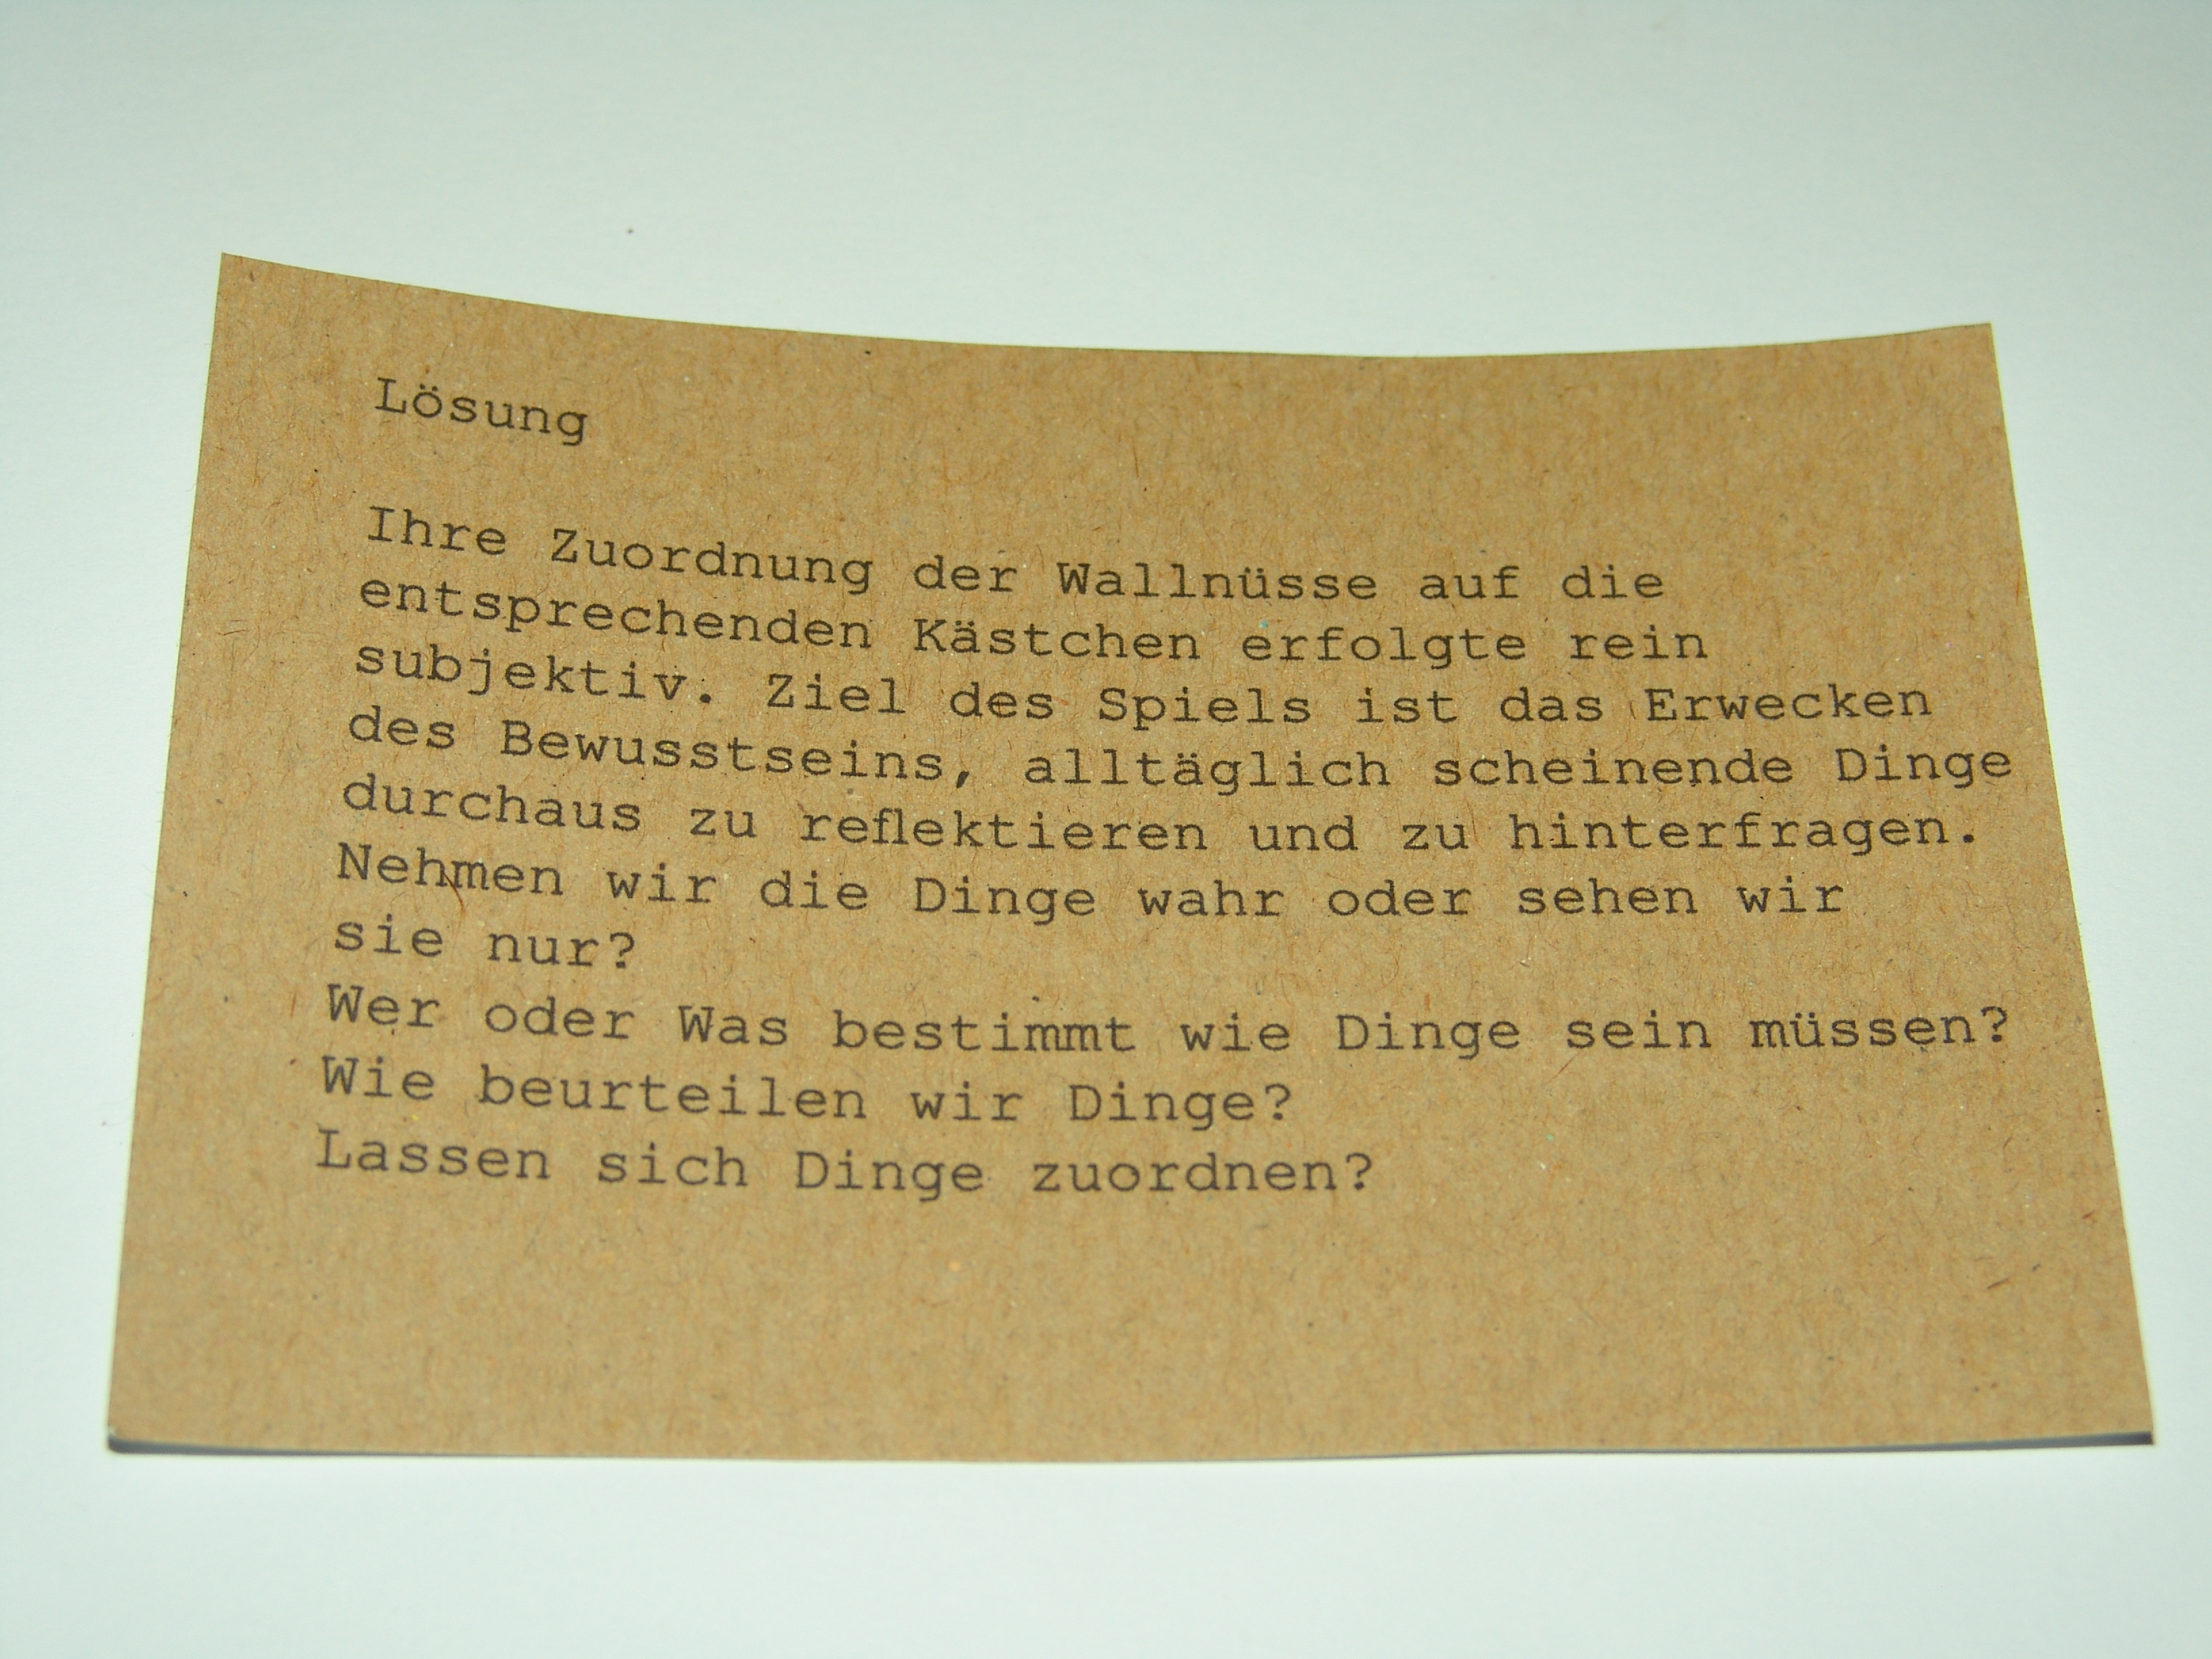 Lösung
Ihre Zuordnung der Wallnüsse auf die
entsprechenden Kästchen erfolgte rein
subjektiv. Ziel des Spiels ist das Erwecken
des Bewusstseins, alltäglich scheinende Dinge
durchaus zu reflektieren und zu hinterfragen.
Nehmen wir die Dinge wahr oder sehen wir
sie nur?
Wer oder Was bestimmt wie Dinge sein müssen?
Wie beurteilen wir Dinge?
Lassen sich Dinge zuordnen?